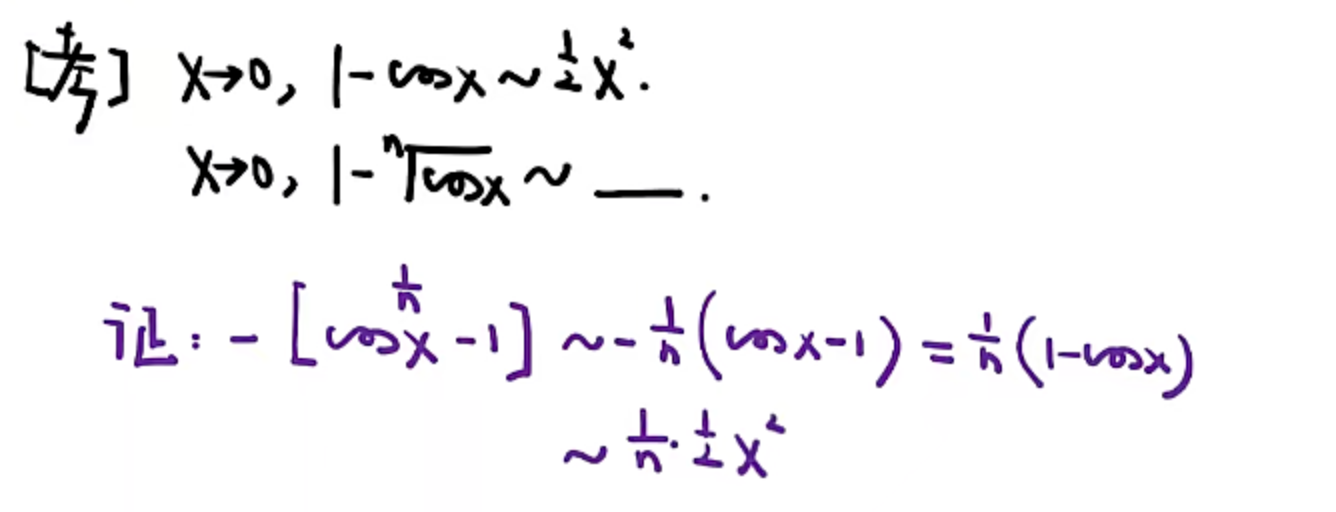 [考] x→0, 1-cosx~½x².
x→0, 1-ⁿ√cosx ~ ___.
证: -[cos^{1/n}x-1] ~ -1/n(cosx-1) = 1/n(1-cosx)
~ 1/n·½x²